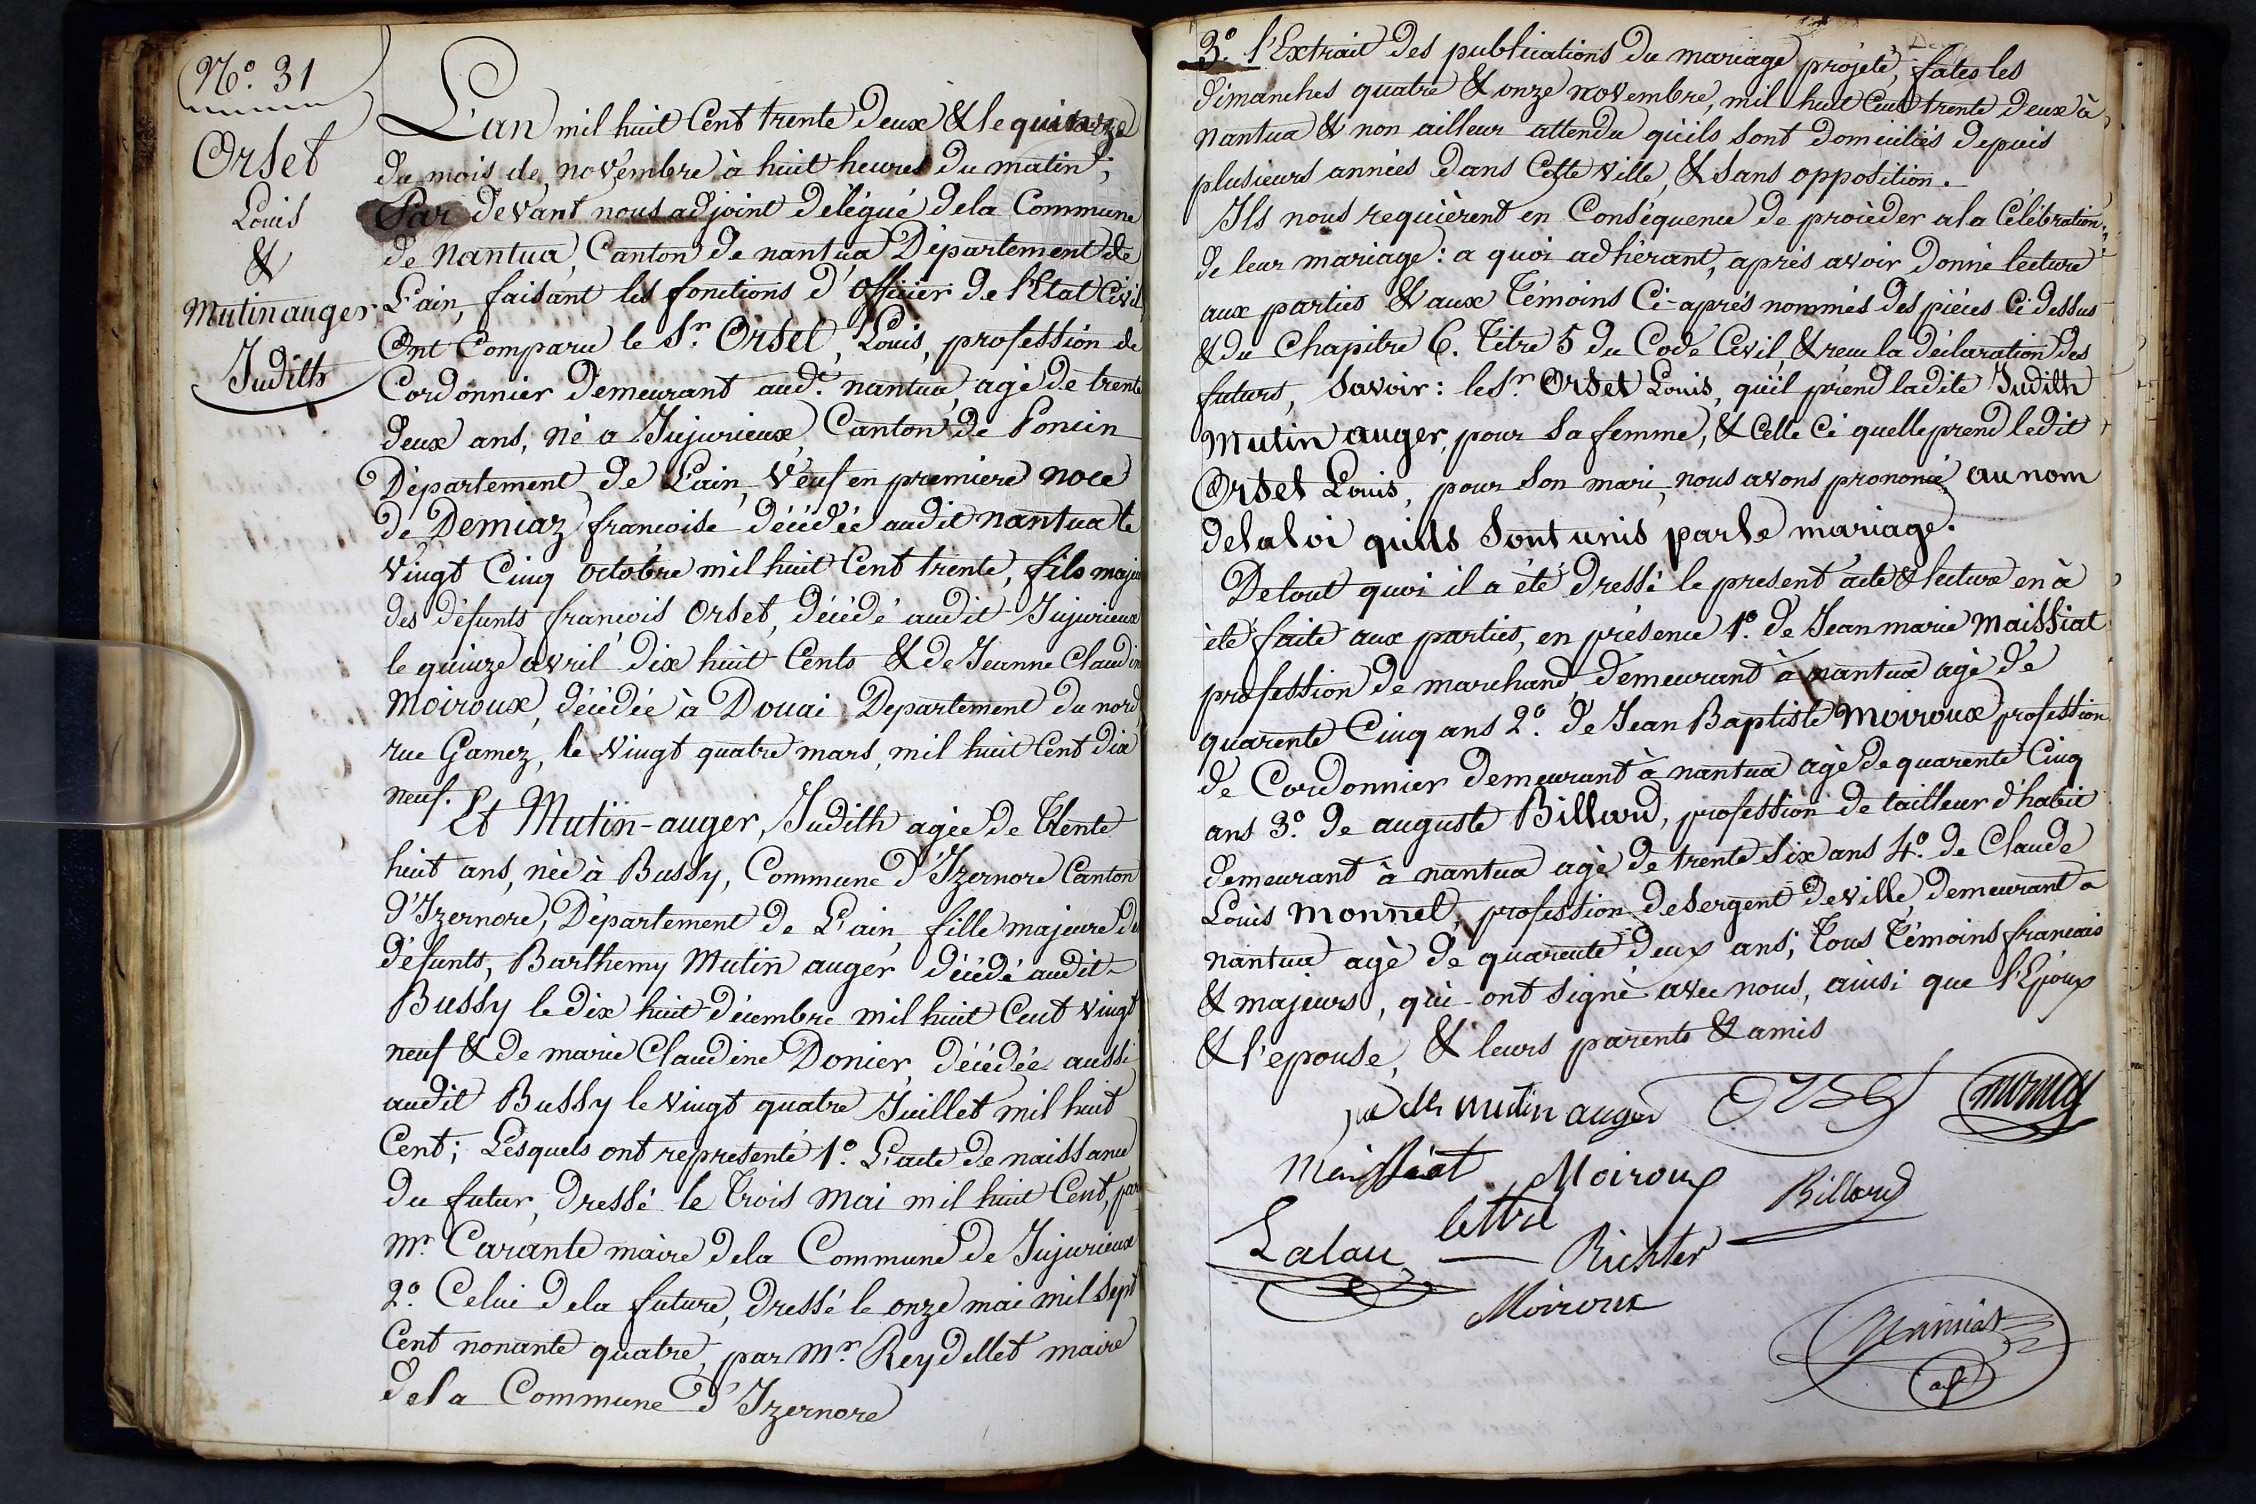 N.º 31
Orset
Louis
&
Mutin auger
Judith
L'an mil huit Cent trente deux & le quinze
du mois de novembre à huit heures du matin,
Par devant nous adjoint délégué dela Commune
de Nantua, Canton de nantua Département de
L'ain, faisant les fonctions d'officier de l'Etat Civil
Ont Comparu le Sr. Orset, Louis, profession de
Cordonnier demeurant aud.t nantua, agé de trente
deux ans, né a Jujurieux Canton de Poncin
Département de L'ain, Veuf en premiere noce
de Demiaz francoise décédée audit nantua le
vingt Cinq octobre mil huit Cent trente, fils majeur
des défunts francois Orset, décédé audit Jujurieux
le quinze avril dix huit Cents & de Jeanne Claudine
Moiroux, décédée à Douai Departement du nord,
rue Gamez, le vingt quatre mars, mil huit Cent dix
neuf.
Et Mutin-auger, Judith agée de trente
huit ans, née à Bussy, Commune d'Izernore Canton
d'Izernore, Département de L'ain, fille majeure de
défunts, Barthemy Mutin auger décédé audit
Bussy le dix huit décembre mil huit Cent vingt
neuf & de marie Claudine Donier, décédée aussi
audit Bussy le vingt quatre Juillet mil huit
Cent; Lesquels ont représenté 1º. L'acte de naissance
du futur, dressé le trois mai mil huit Cent, par
Mr. Carante maire dela Commune de Jujurieux
2º. Celui dela future, dressé le onze mai mil sept
Cent nonante quatre, par Mr. Reydellet maire
dela Commune d'Izernore
3º. l'Extrait des publications du mariage projeté, faites les
dimanches quatre & onze novembre, mil huit Cent trente deux à
nantua & non ailleur attendu qu'ils sont domiciliés depuis
plusieurs années dans Cette ville, & sans opposition.
Ils nous requièrent en Conséquence de procéder a la Célébration
de leur mariage: a quoi adhérant, après avoir donné lecture
aux parties & aux témoins Ci-après nommés des pièces Ci dessus
& du Chapitre 6. Titre 5 du Code Civil, & recu la déclaration des
futurs, Savoir: le Sr. Orset Louis, qu'il prend ladite Judith
Mutin auger, pour sa femme, & Celle Ci quelle prend ledit
Orset Louis, pour son mari, nous avons prononcé au nom
dela loi quils sont unis par le mariage.
De tout quoi il a été dressé le present acte & lecture en a
été faite aux parties, en présence 1º. de Jean marie Maissiat
profession de marchand demeurant à nantua agé de
quarente Cinq ans 2º. de Jean Baptiste Moiroux profession
de Cordonnier demeurant à nantua agé de quarente Cinq
ans 3º. de auguste Billard, profession de tailleur d'habit
demeurant à nantua agé de trente six ans 4º. de Claude
Louis Monnet, profession de sergent de ville demeurant a
nantua agé de quarente deux ans; tous témoins francais
& majeurs, qui ont signé avec nous, ainsi que l'Epoux
& l'epouse, & leurs parents & amis
mutin auger Orset monnet
Maissiat Moiroux Billard
Lalau Richter
Moiroux